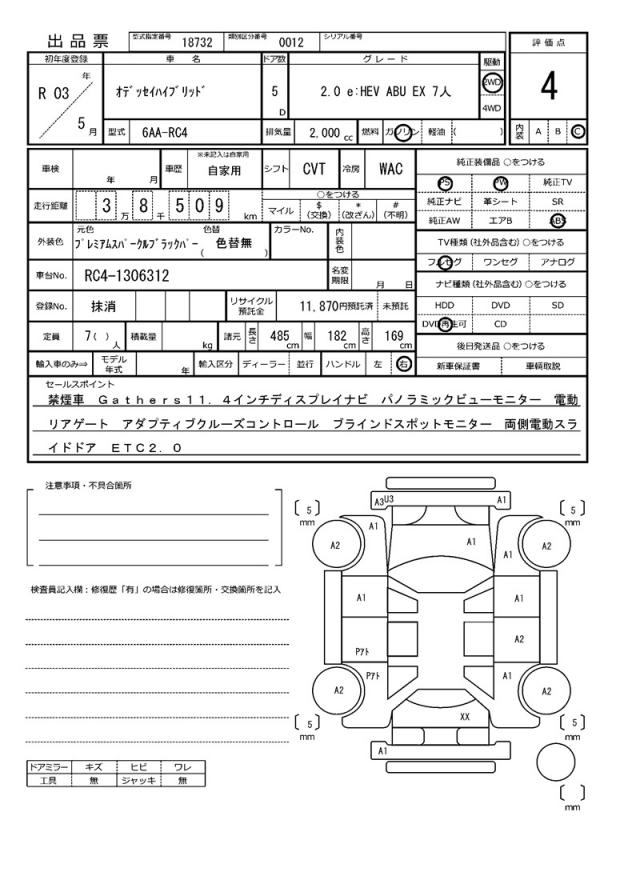 出品票 型式指定番号 18732 類別区分番号 0012 シリアル番号
評価点
4
初年度登録 車名 ドア数 グレード 駆動
R 03 年 5 月
ｵﾃﾞｯｾｲﾊｲﾌﾞﾘｯﾄﾞ 5 D 2.0 e:HEV ABU EX 7人 2WD
4WD
型式 6AA-RC4 排気量 2,000 cc 燃料 ガソリン 軽油 ( )
内装 A B C
車検 年 月 車歴 ※未記入は自家用 自家用 シフト CVT 冷房 WAC
純正装備品 ○をつける
PS PW 純正TV
純正ナビ 革シート SR
純正AW エアB ABS
走行距離 3 万 8 千 5 0 9 km
○をつける
マイル $(交換) *(改ざん) #(不明)
外装色 元色 色替
ﾌﾟﾚﾐｱﾑｽﾊﾟｰｸﾙﾌﾞﾗｯｸﾊﾟｰ ( 色替無 )
カラーNo. 内装色
TV種類 (社外品含む) ○をつける
フルセグ ワンセグ アナログ
車台No. RC4-1306312 名変期限 月 日
ナビ種類 (社外品含む) ○をつける
HDD DVD SD
DVD再生可 CD
登録No. 抹消 リサイクル預託金 11,870円預託済 未預託
定員 7( ) 人 積載量 kg 諸元 長さ 485 cm 幅 182 cm 高さ 169 cm
後日発送品 ○をつける
新車保証書 車輌取説
輸入車のみ⇒ モデル年式 年 輸入区分 ディーラー 並行 ハンドル 左 右
セールスポイント
禁煙車 Ｇａｔｈｅｒｓ１１．４インチディスプレイナビ パノラミックビューモニター 電動
リアゲート アダプティブクルーズコントロール ブラインドスポットモニター 両側電動スラ
イドドア ＥＴＣ２．０
注意事項・不具合箇所
検査員記入欄：修復歴「有」の場合は修復箇所・交換箇所を記入
ドアミラー キズ ヒビ ワレ
工具 無 ジャッキ 無
A3 U3 A1
5 mm 5 mm
A1 A1 A1
A2 A2
A1 A1
Pｱﾄ A2
Pｱﾄ A1
A2 A2
XX
5 mm 5 mm
A1
mm